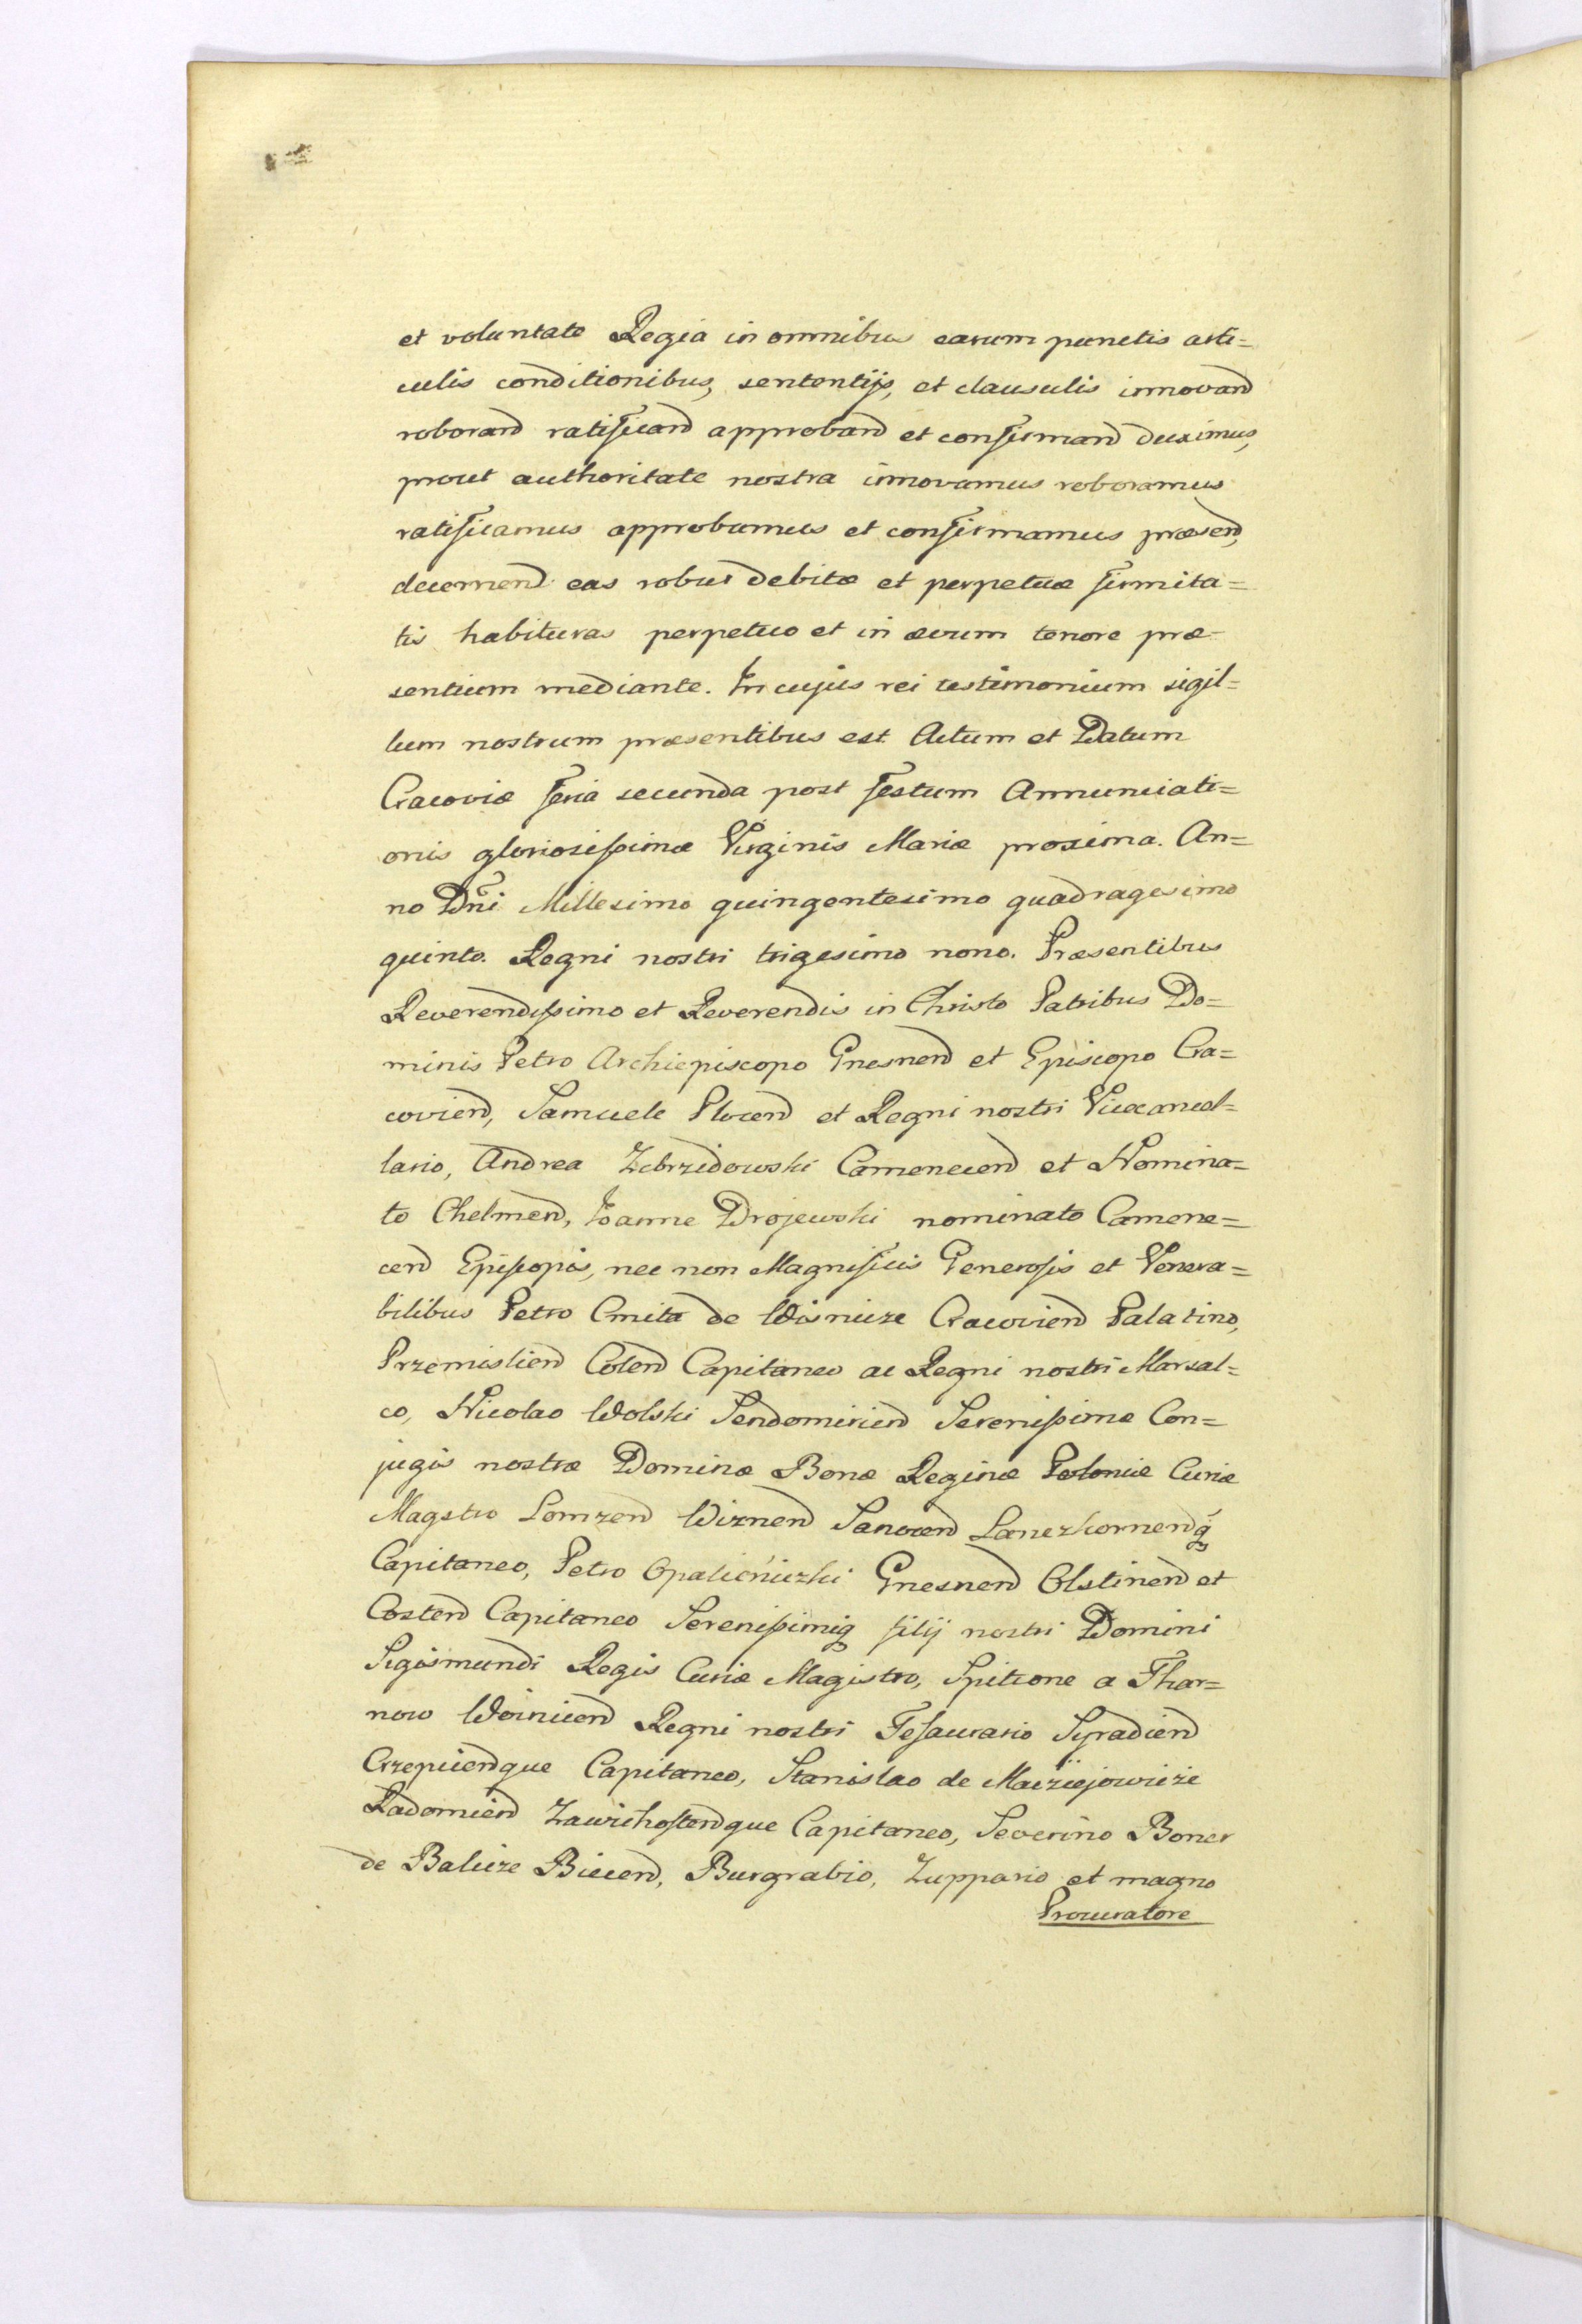 et voluntate Regia in omnibus earum punctis arti=
culis conditionibus, sententijs, et clausulis innovand
roborand ratificand approband et confirmand duximus,
prout authoritate nostra innovamus roboramus
ratificamus approbamus et confirmamus præsend,
decernend eas robur debitæ et perpetuæ firmita=
tis habituras perpetuo et in ævum tenore præ=
sentium mediante. In cujus rei testimonium sigil=
lum nostrum præsentibus est Actum et Datum
Cracoviæ feria secunda post festum Annunciati=
onis gloriosissimæ Virginis Mariæ proxima. An=
no Dni Millesimo quingentesimo quadragesimo
quinto. Regni nostri trigesimo nono. Præsentibus
Reverendissimo et Reverendis in Christo Patribus Do=
minis Petro Archiepiscopo Gnesnend et Episcopo Cra=
coviend, Samuele Plocend et Regni nostri Vicecancel=
lario, Andrea Zebrzidowski Camenecend et Nomina=
to Chelmend, Ioanne Drojewski nominato Camene=
cend Episcopis, nec non Magnificis Generosis et Venera=
bilibus Petro Cmita de Wisnicze Cracoviend Palatino,
Przemisliend Colend Capitaneo ac Regni nostri Marsal=
co, Nicolao Wolski Sendomiriend Serenissimæ Con=
jugis nostræ Dominæ Bonæ Reginæ Poloniæ Curiæ
Magstro Lomzend Wiznend Sanocend Lanczkornendq
Capitaneo, Petro Opalieniczki Gnesnend Olstinend et
Costend Capitaneo Serenissimiq filij nostri Domini
Sigismundi Regis Curiæ Magistro, Spitcone a Thar=
now Woinicend Regni nostri Tesaurario Syradiend
Crzepicendque Capitaneo, Stanislao de Macziejowicze
Radomiend Zawichostendque Capitaneo, Severino Boner
de Balicze Biecend, Burgrabio, Zuppario et magno
Procuratore